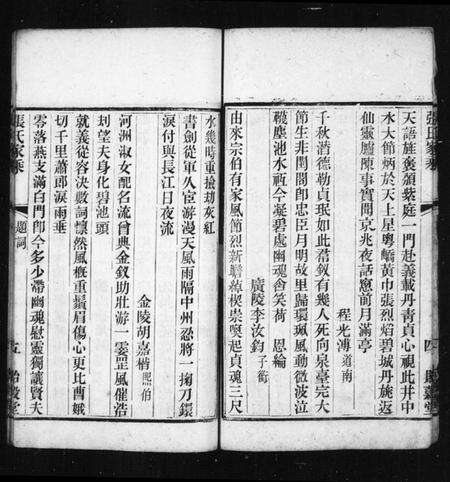 張氏家乘
四
天語旌褒頒紫庭一門赴義載丹青貞心視此井中
水大節炳於天上星粵嶠黃巾張烈焰碧城丹旐返
仙靈臚陳事實問京兆夜話窻前月滿亭
程光溥道南
千秋潛德勒貞珉如此裙釵有幾人死向泉臺完大
節生非閨閣卽忠臣月明故里歸環珮風動微波泣
襪塵池水祇今凝碧處幽魂含笑荷　恩綸
廣陵李汝鈞子衡
由來宗伯有家風節烈新瞻綽楔崇喚起貞魂三尺
水幾時重撿刼灰紅
書劍從軍久宦游漫天風雨隔中州忍將一掬刀鐶
淚付與長江日夜流
金陵胡嘉楷熙伯
河洲淑女配名流曾典金釵助壯游一霎罡風催浩
刧望夫身化碧池頭
就義從容決數詞懷然風概重鬚眉傷心更比曹娥
切千里蕭郎淚雨垂
零落燕支滿白門卽今多少帶幽魂慰靈獨讓賢夫
張氏家乘
題詞
五